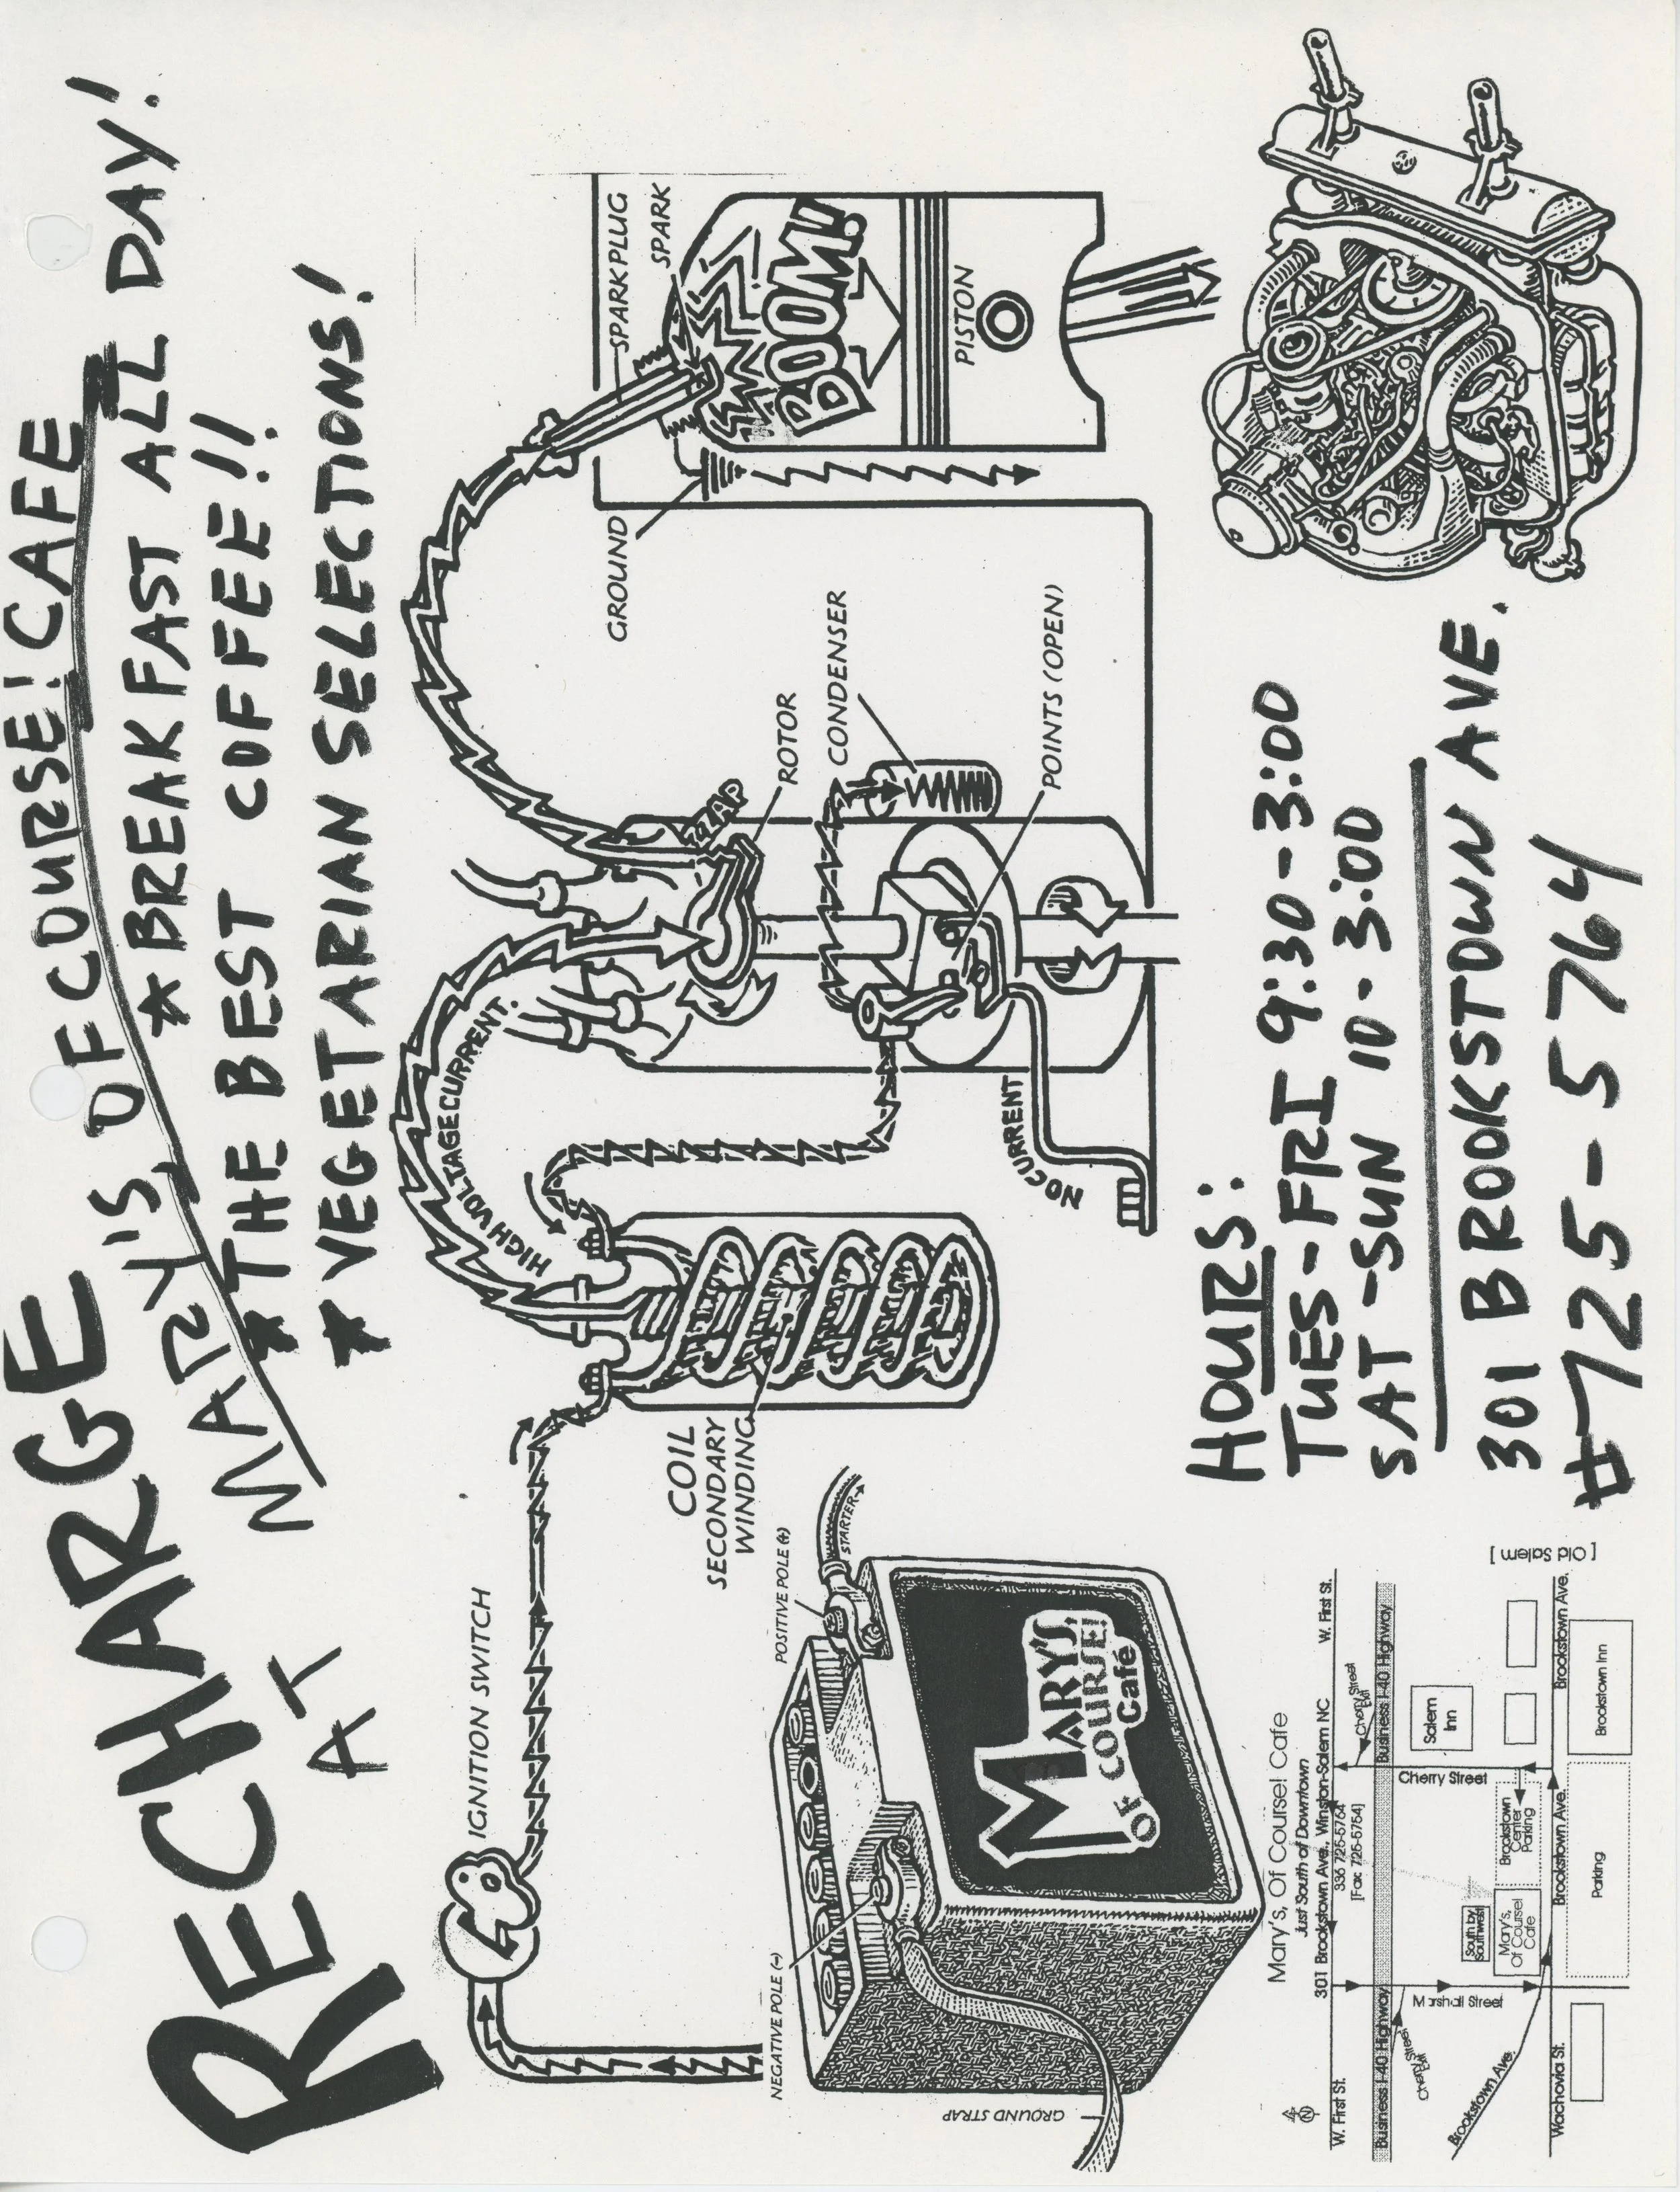 RECHARGE
AT
MARY'S, OF COURSE! CAFE
* BREAKFAST ALL DAY!
* THE BEST COFFEE!!
* VEGETARIAN SELECTIONS!
IGNITION SWITCH
HIGH VOLTAGE CURRENT.
COIL
SECONDARY
WINDING
ZZAP
ROTOR
CONDENSER
POINTS (OPEN)
NO CURRENT
GROUND
SPARKPLUG
SPARK
BOOM!
PISTON
POSITIVE POLE (+)
STARTER
NEGATIVE POLE (-)
GROUND STRAP
MARY'S,
OF COURSE!
Café
HOURS:
TUES-FRI 9:30-3:00
SAT-SUN 10-3:00
301 BROOKSTOWN AVE.
#725-5764
Mary's, Of Course! Cafe
Just South of Downtown
301 Brookstown Ave., Winston-Salem NC
336 725-5764
[Fax: 725-5754]
N
W. First St.
W. First St.
Cherry Street
Exit
Business I-40 Highway
Business I-40 Highway
Cherry Street
Exit
Salem
Inn
Cherry Street
Marshall Street
South by
Southwest
Mary's,
Of Course!
Cafe
Brookstown
Center
Parking
[ Old Salem ]
Brookstown Ave.
Brookstown Ave.
Brookstown Ave.
Wachovia St.
Parking
Brookstown Inn